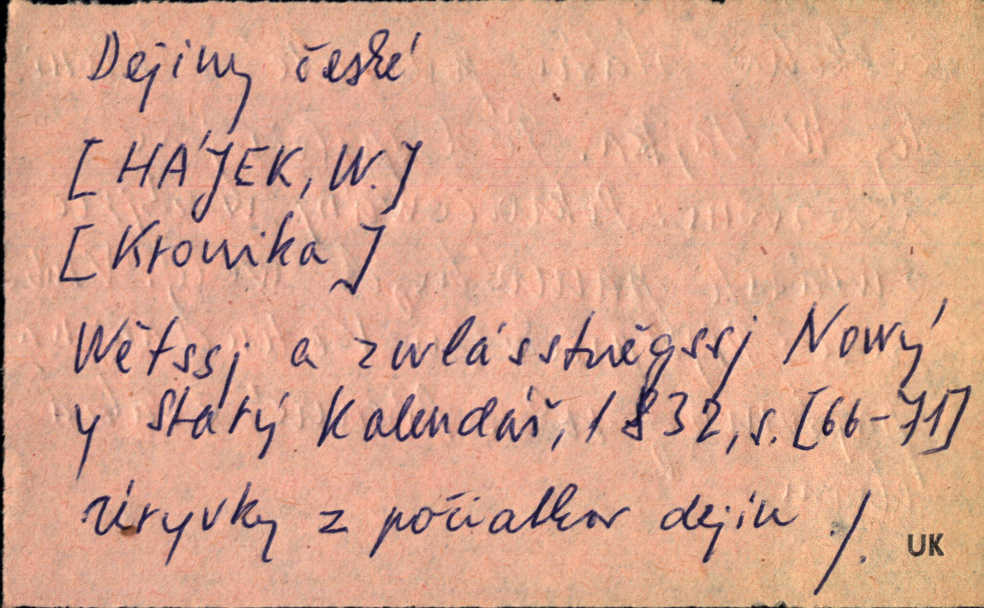 Dejiny české
[HÁJEK, W.]
[Kronika]
Wětssj a zwlásstněgssj Nowý
y Starý Kalendář, 1832, s. [66-71]
Úryvky z počiatkov dejín ./.
UK